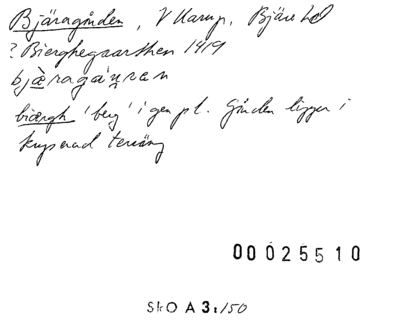 Bjäragården, V Karup, Bjäre hd
? Bierghegaarthen 1419
bjæ̀ragáṇran
biærgh 'berg' i gen pl. Gården ligger i
kuperad terräng
00025510
SkO A 3:/150